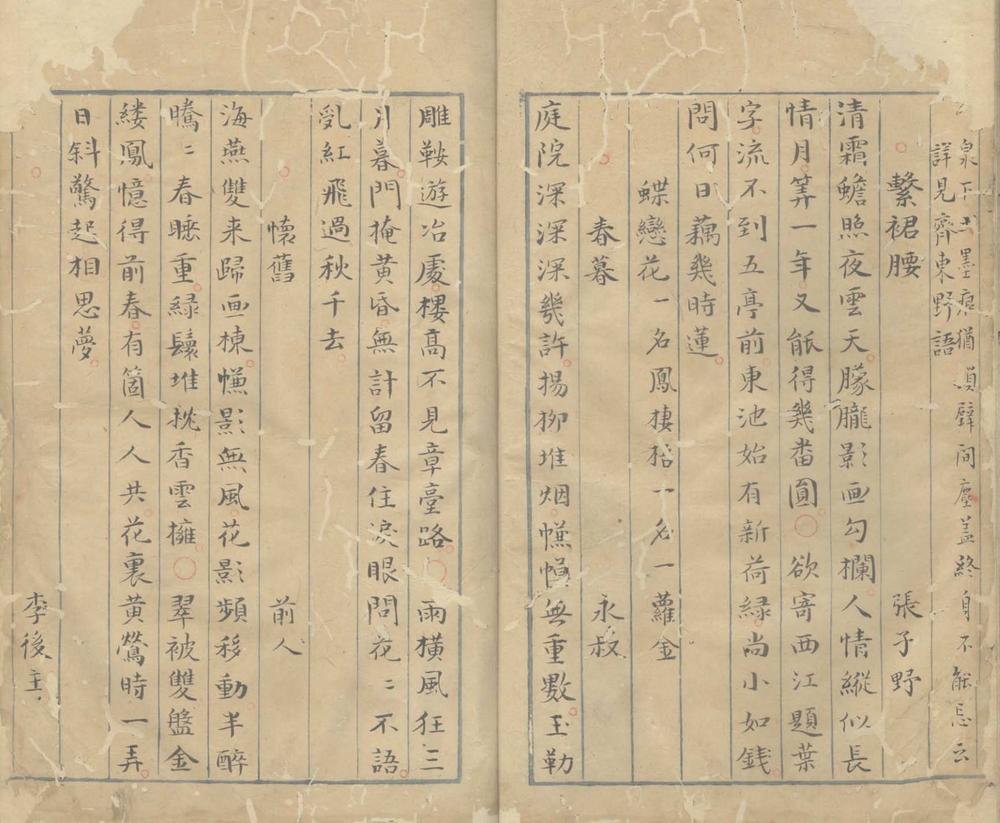 泉下土墨痕猶　順壁間塵蓋終身不能忘云
詳見齊東野語
繫裙腰　張子野
清霜蟾照夜雲天朦朧影画勾欄人情縱似長
情月筭一年又能得幾畨圓〇欲寄西江題葉
字流不到五亭前東池始有新荷緑尚小如錢
問何日藕幾時蓮
蝶戀花一名鳳棲梧一名一蘿金
春暮　永叔
庭院深深深幾許楊柳堆烟㡘幙無重數玉勒
雕鞍遊冶處樓髙不見章臺路〇雨横風狂三
月暮門掩黄昏無計留春住淚眼問花〻不語
乱紅飛過秋千去
懷舊　前人
海燕雙来歸画棟㡘影無風花影頻移動半醉
騰〻春睡重緑鬟堆枕香雲擁〇翠被雙盤金
縷鳳憶得前春有箇人人共花裏黄鶯時一弄
日斜驚起相思夢
李後主